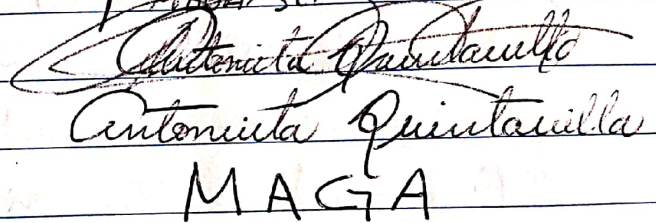 Antonieta Quintanilla
Antonieta Quintanilla
MAGA